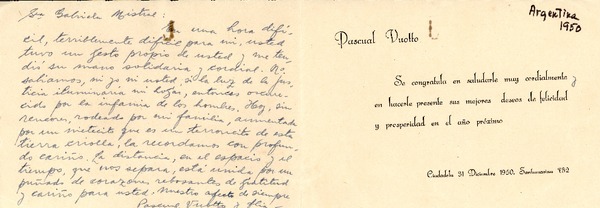 Sra Gabriela Mistral:
En una hora difí-
cil, terriblemente difícil para mi, usted
tuvo un gesto propio de usted y me ten-
dió su mano solidaria y cordial. No
sabíamos, ni yo ni usted, si la luz de la jus-
ticia iluminaría mi hogar, entonces oscure-
cido por la infamia de los hombres. Hoy, sin
rencores, rodeado por mi familia, aumentada
por un nietecito que es un terroncito de esta
tierra criolla, la recordamos con profun-
do cariño. La distancia, en el espacio y el
tiempo, que nos separa, está unida por un
puñado de corazones rebosantes de gratitud
y cariño para usted. Nuestro afecto de siempre
Pascual Vuotto y
Argentina
1950
Pascual Vuotto
Se congratula en saludarle muy cordialmente y
en hacerle presente sus mejores deseos de felicidad
y prosperidad en el año próximo
Ciudadela 31 Diciembre 1950,
752